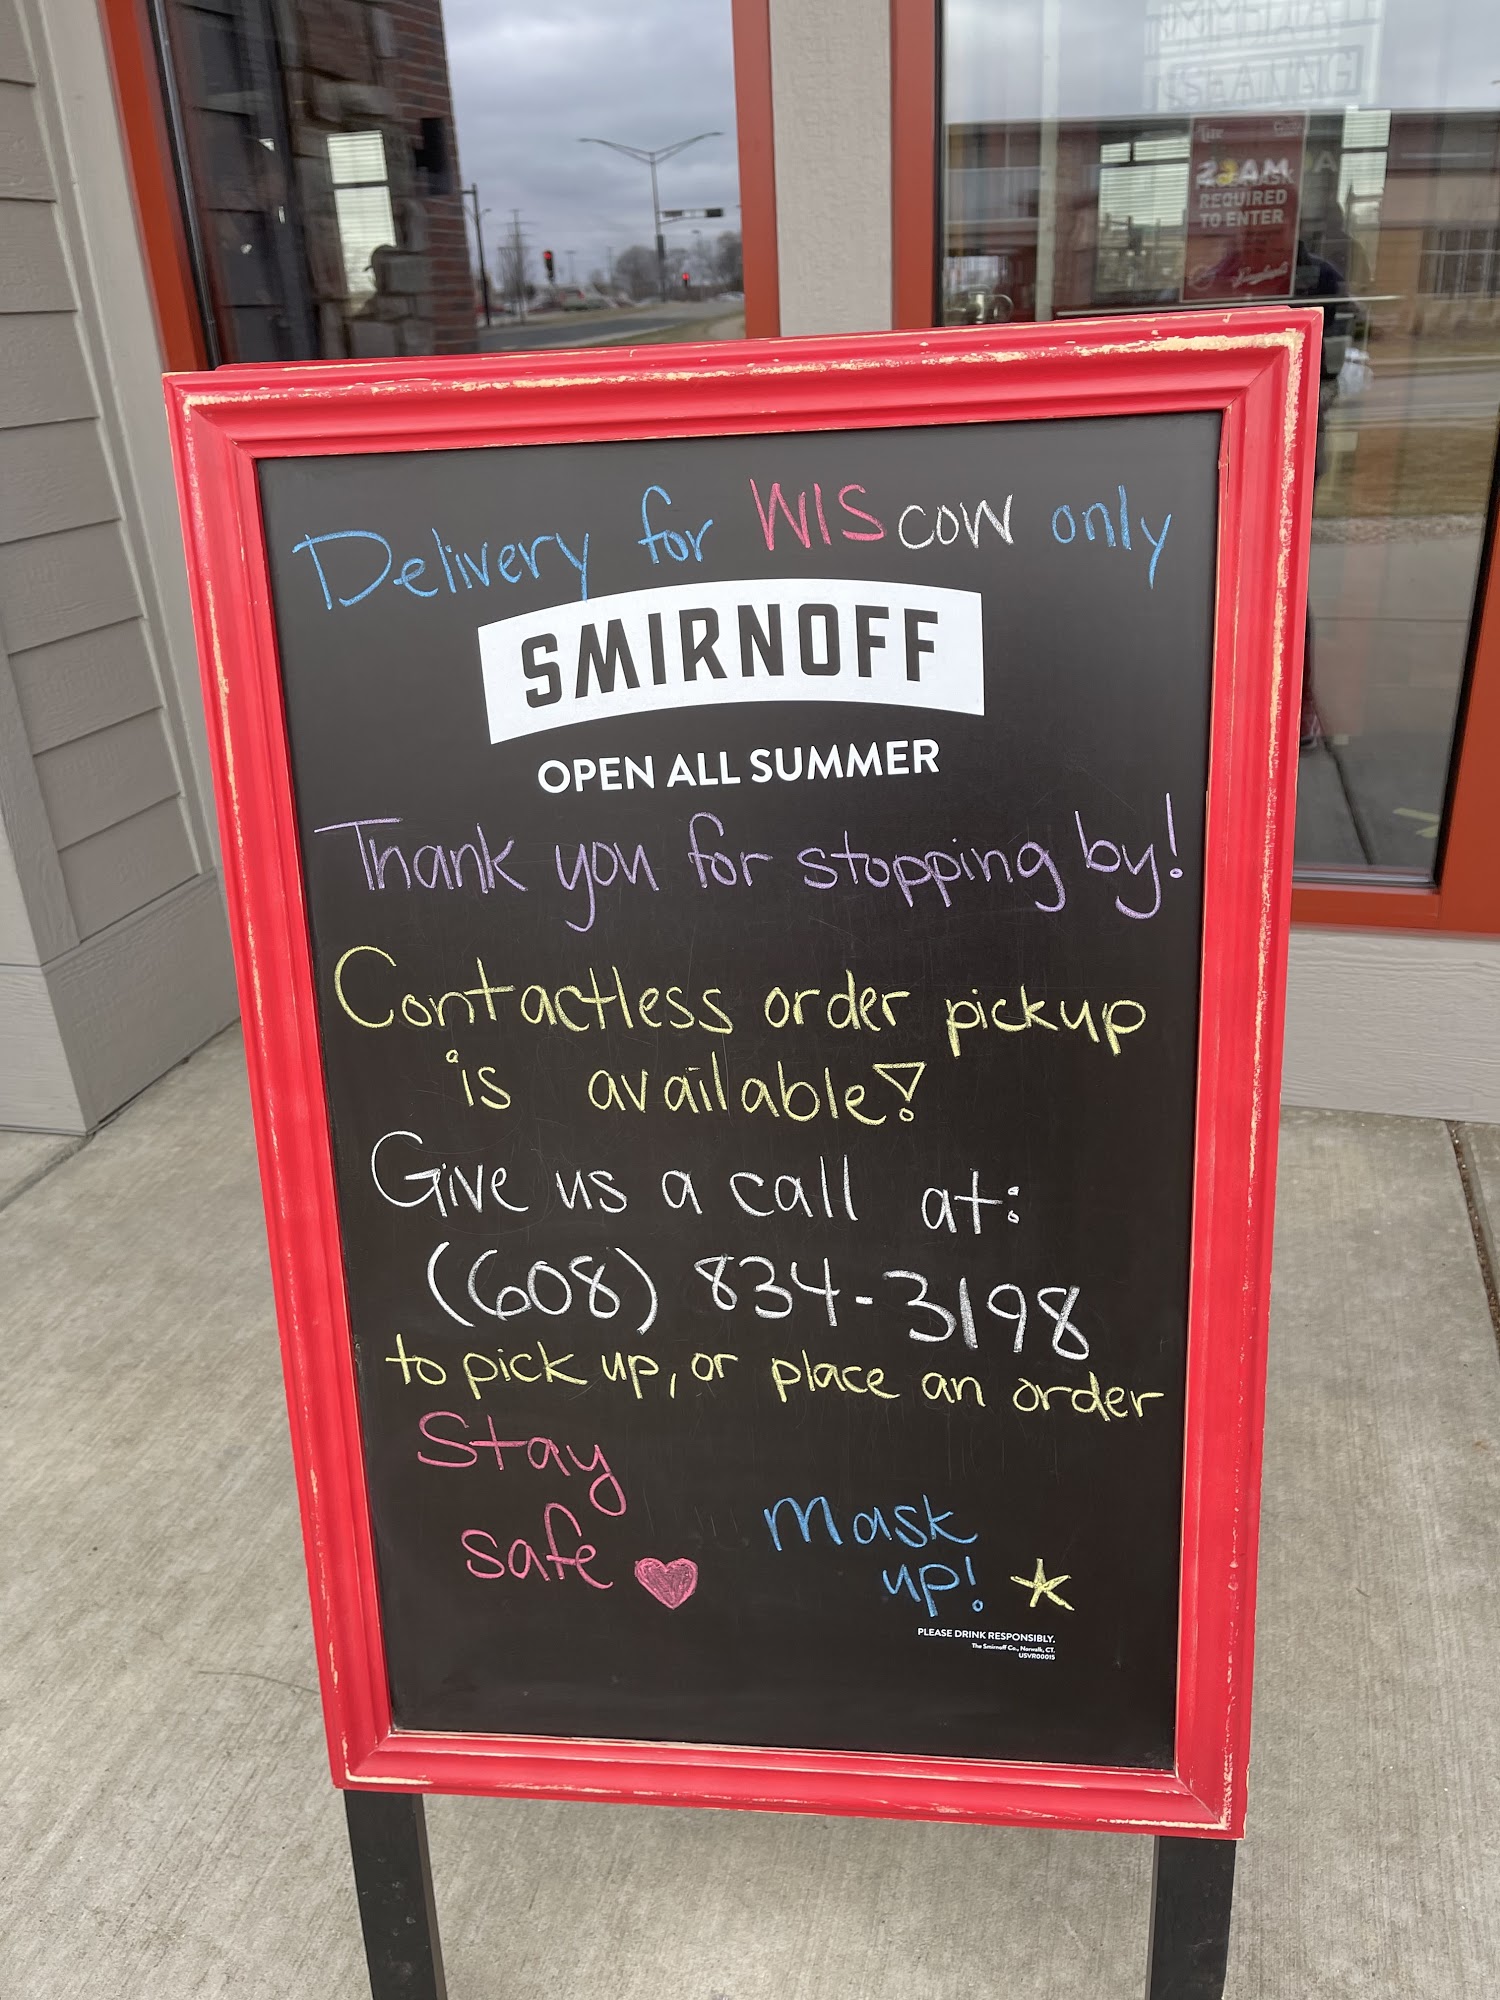 REQUIRED
TO ENTER
Delivery for WIScow only
SMIRNOFF
OPEN ALL SUMMER
Thank you for stopping by!
Contactless order pickup
is available!
Give us a call at:
(608) 834-3198
to pick up, or place an order
Stay
safe
Mask
up!
PLEASE DRINK RESPONSIBLY.
The Smirnoff Co., Norwalk, CT.
USVR00015